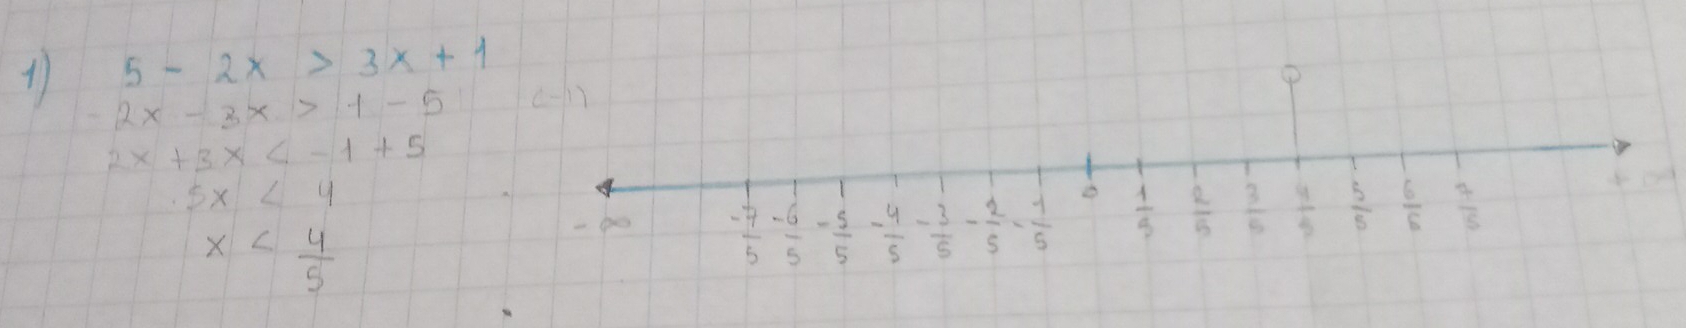 1) 5 - 2x > 3x + 1
- 2x - 3x > 1 - 5 (-1)
2x + 3x < - 1 + 5
5x < 4
x < 4/5
-∞ -7/5 -6/5 -5/5 -4/5 -3/5 -2/5 -1/5 0 1/5 2/5 3/5 4/5 5/5 6/5 7/5 +